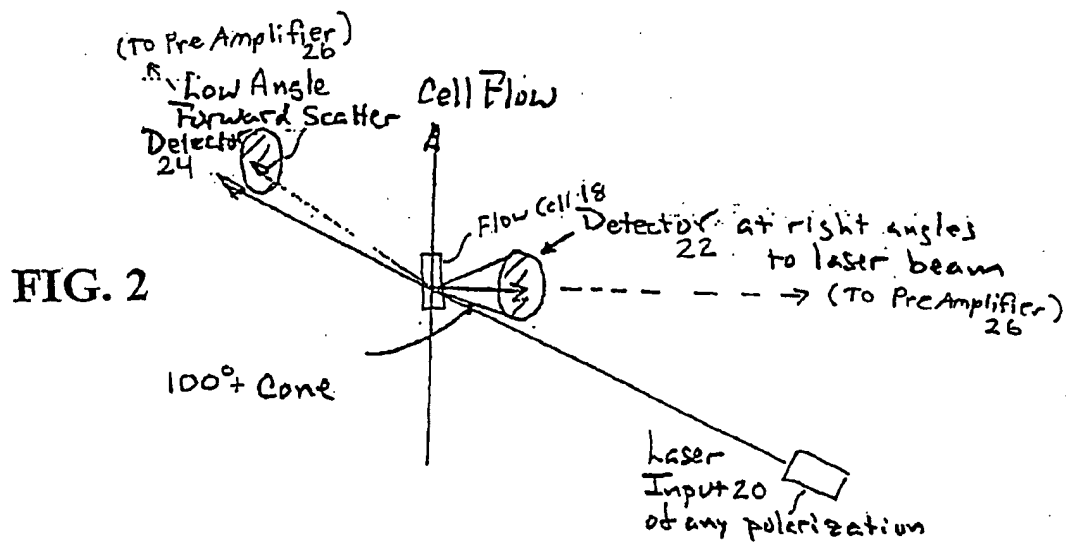 (To Pre Amplifier)
26
Low Angle
Forward Scatter
Detector
24
Cell Flow
Flow Cell 18
Detector at right angles
22
to laser beam
(To PreAmplifier)
26
FIG. 2
100°+ Cone
Laser
Input 20
of any polarization